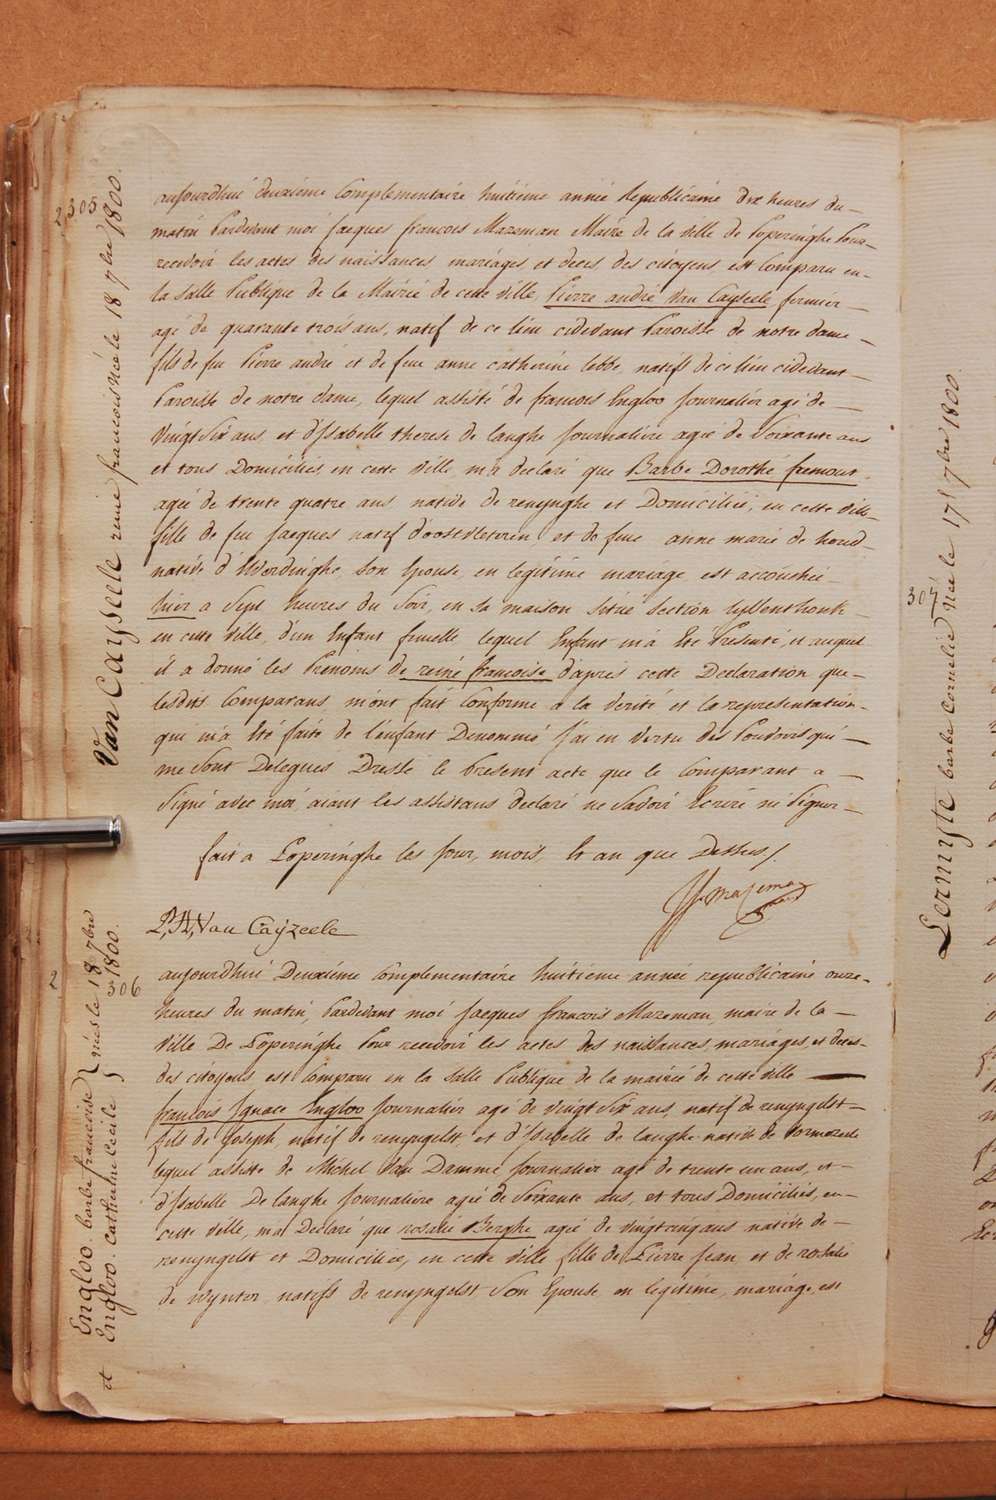 2305
Van Cayseele reine francoise Née le 18 7bre 1800.
aujourdhui deuxième Complementaire huitième année Republicaine dix heures du
matin Pardevant moi jacques francois Mazeman Maire de la ville de Poperinghe Pour
recevoir les actes des naissances mariages, et deces des citoyens est Comparu en
la salle Publique de la Mairie de cette ville, Pierre andré Van Cayseele fermier
agé de quarante trois ans, natif de ce lieu cidevant Paroisse de notre dame
fils de feu Pierre andre et de feue anne catherine lebbe, natifs de ce lieu cidevant
Paroisse de notre dame, lequel assisté de francois Engloo journalier agé de
vingt Six ans, et d'Isabelle therese de langhe journaliere agée de Soixante ans
et tous Domiciliés, en cette ville m'a declaré que Barbe Dorothé fremout
agée de trente quatre ans native de renynghe et Domiciliée, en cette ville
fille de feu jacques natif d'oostvleteren, et de feue anne marie de
native d' son Epouse, en legitime mariage, est accouchée
hier a Sept heures du Soir, en sa maison Située Section
en cette ville, d'un Enfant femelle lequel Enfant m'a Eté Presenté, et auquel
il a donné les Prénoms de reine francoise d'après cette Declaration que
lesdits Comparans m'ont fait Conforme a la verité et la representation
qui m'a Eté faite de l'enfant Denommé j'ai en vertu des Pouvoirs qui
me Sont Delegues Dressé le Present acte que le Comparant a
Signé avec moi aiant les assistans declaré ne Savoir Ecrire ni Signer
fait a Poperinghe les jour, mois, Et an que Dessus /.
JJ. Mazeman
P,A, Van Cayzeele
2
306
Engloo. barbe francoise } nées le 18 7bre
et Engloo. Catherine Cecile } 1800.
aujourdhui Deuxième Complementaire huitieme année republicaine onze
heures du matin, Pardevant moi jacques francois Mazeman, maire de la
ville De Poperinghe Pour recevoir les actes des naissances, mariages, et deces
des citoyens est Comparu en la salle Publique de la mairie de cette ville
francois Ignace Engloo journalier agé de vingt Six ans, natif de renyngelst
fils de joseph, natif de renyngelst et d'Isabelle de langhe native de vormezeele
lequel assisté de Michel Van Damme journalier agé de trente un ans, et
d'Isabelle De langhe journaliere agée de Soixante ans, et tous Domiciliés, en
cette ville, m'a Declaré que rosalie Berghe agée de vingt cinq ans native de
renyngelst et Domiciliée, en cette ville fille de Pierre jean, et de rosalie
de Wynter, natifs de renyngelst Son Epouse, en legitime, mariage, est
307
Lermyte barbe Cornelie Née le 17 7bre 1800.